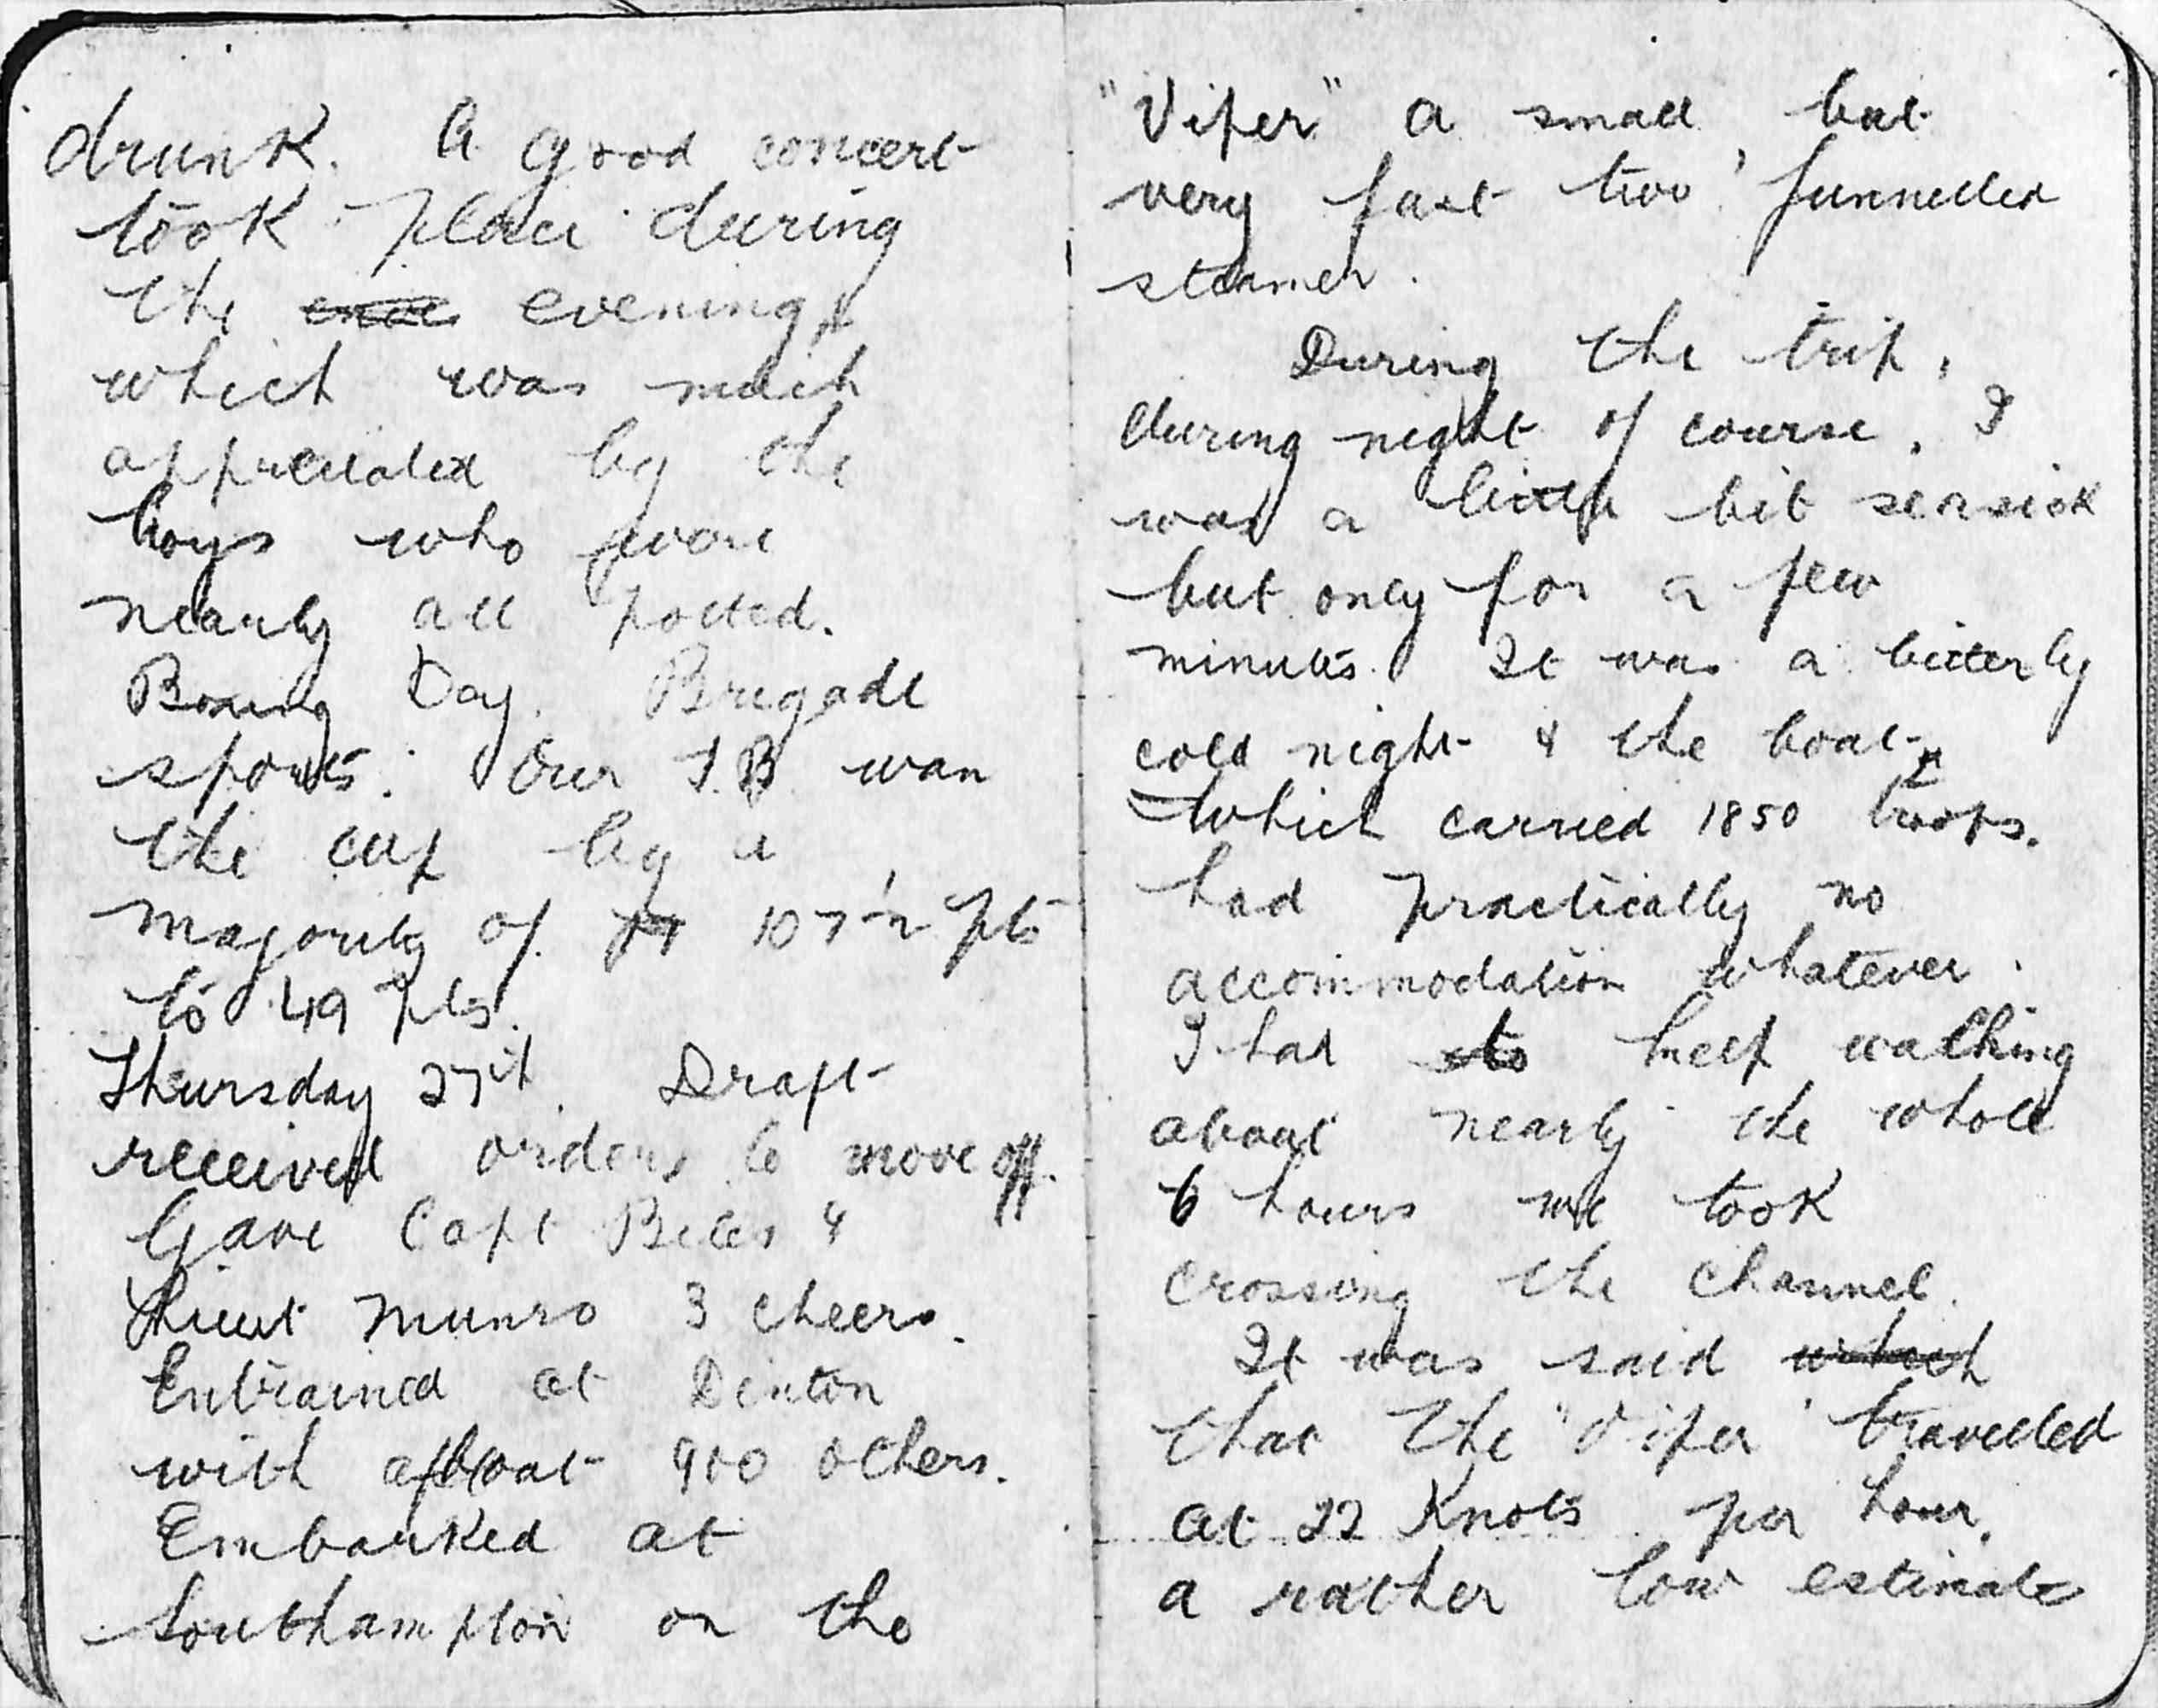 drunk. A good concert
took place during
the evening,
which was much
appreciated by the
boys who were
nearly all potted.
Boxing Day. Brigade
sports. Our T.B won
the cup by a
majority of 107½ pts
to 49 pts.
Thursday 27th. Draft
received orders to move off.
Gave Capt &
Lieut Munro 3 cheers.
Entrained at Dinton
with about 900 others.
Embarked at
Southampton on the
"Viper" a small, but
very fast two funnelled
steamer.
During the trip,
during night of course, I
was a little bit seasick
but only for a few
minutes. It was a bitterly
cold night & the boat
which carried 1850 troops.
had practically no
accommodation whatever.
I had to keep walking
about nearly the whole
6 hours we took
crossing the channel.
It was said which
that the "Viper" travelled
at 22 Knots per hour,
a rather low estimate